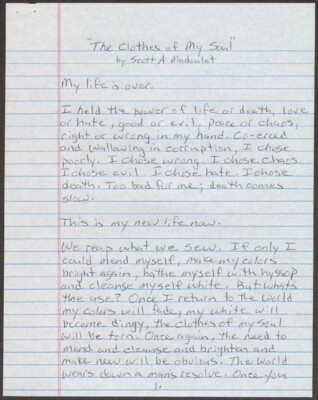 "The Clothes of My Soul"
by Scott A.
My life is over.
I held the power of life or death, love
or hate, good or evil, peace or chaos,
right or wrong in my hand. Co-erced
and wallowing in corruption, I chose
poorly. I chose wrong. I chose chaos.
I chose evil. I chose hate. I chose
death. Too bad for me; death comes
slow.
This is my new life now.
We reap what we sew. If only I
could mend myself, make my colors
bright again, bathe myself with hyssop
and cleanse myself white. But what's
the use? Once I return to the world
my colors will fade, my white will
become dingy, the clothes of my soul
will be torn. Once again, the need to
mend and cleanse and brighten and
make new will be obvious. The world
wears down a man's resolve. Once you
1.